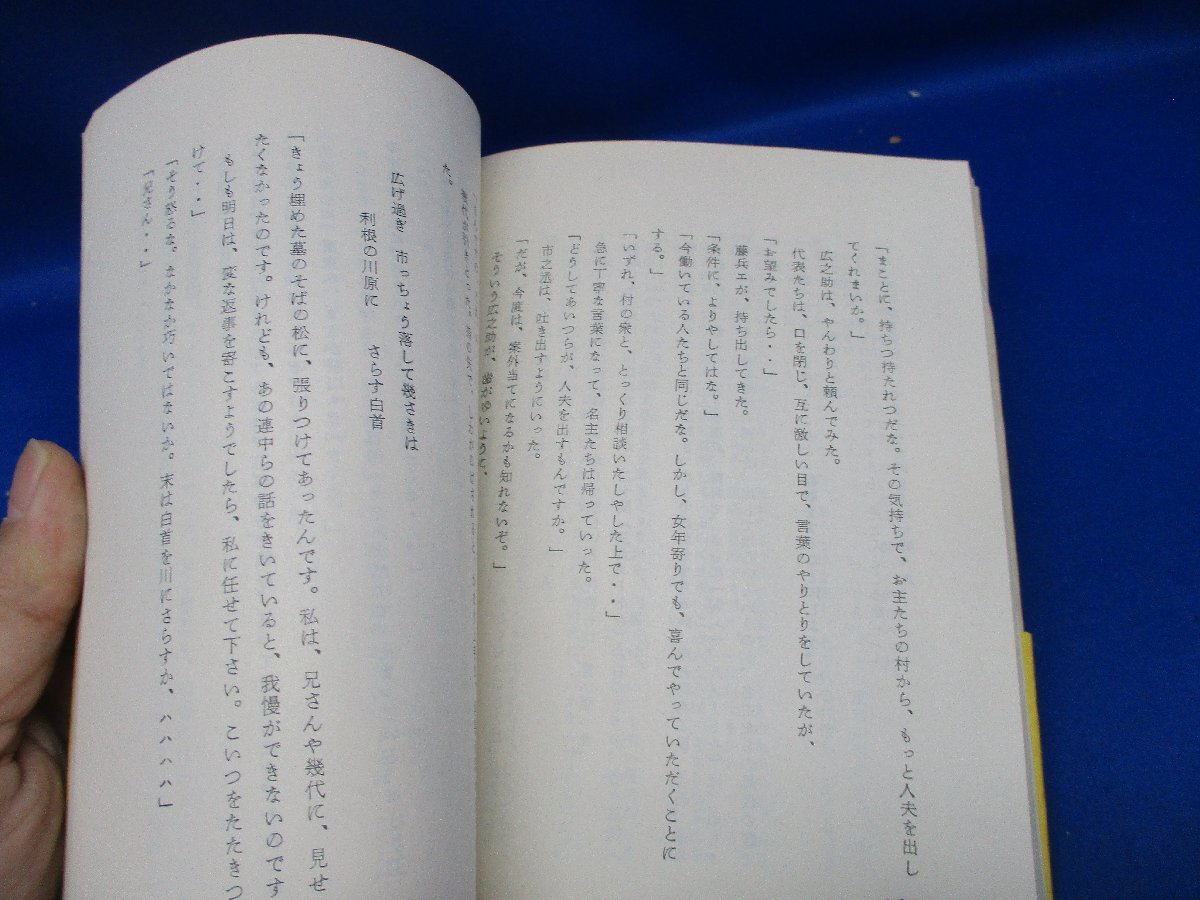 「まことに、持ちつ持たれつだな。その気持ちで、お主たちの村から、もっと人夫を出し
てくれまいか。」
広之助は、やんわりと頼んでみた。
代表たちは、口を閉じ、互に激しい目で、言葉のやりとりをしていたが、
「お望みでしたら・・」
藤兵エが、持ち出してきた。
「条件に、よりやしてはな。」
「今働いている人たちと同じだな。しかし、女年寄りでも、喜んでやっていただくことに
する。」
「いずれ、村の衆と、とっくり相談いたしやした上で・・」
急に丁寧な言葉になって、名主たちは帰っていった。
「どうしてあいつらが、人夫を出すもんですか。」
市之丞は、吐き出すようにいった。
「だが、今度は、案外当てになるかも知れないぞ。」
そういう広之助が、歯がゆいように、
た。
広げ過ぎ 市っちょう落して幾さきは
利根の川原に さらす白首
「きょう埋めた墓のそばの松に、張りつけてあったんです。私は、兄さんや幾代に、見せ
たくなかったのです。けれども、あの連中らの話をきいていると、我慢ができないのです
もしも明日は、変な返事を寄こすようでしたら、私に任せて下さい。こいつをたたきつ
けて・・」
「そう怒るな。なかなか巧いではないか。末は白首を川にさらすか、ハハハハ」
「兄さん・・」